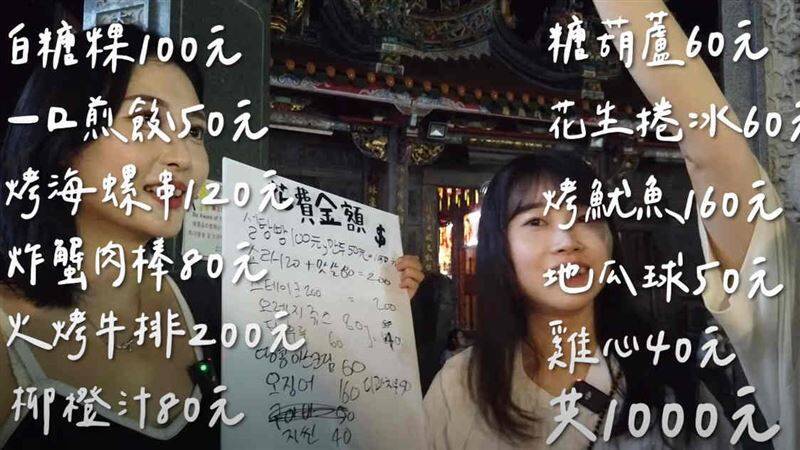 白糖粿100元
一口煎餃50元
烤海螺串120元
炸蟹肉棒80元
火烤牛排200元
柳橙汁80元
糖葫蘆60元
花生捲冰60元
烤魷魚160元
地瓜球50元
雞心40元
共1000元
花費金額 $
설탕빵 100元
소라 120 + 맛살 80 = 200
스테이크 200 = 200
오렌지 쥬스 80
60
땅콩아이스크림 60
오징어 160
50
40